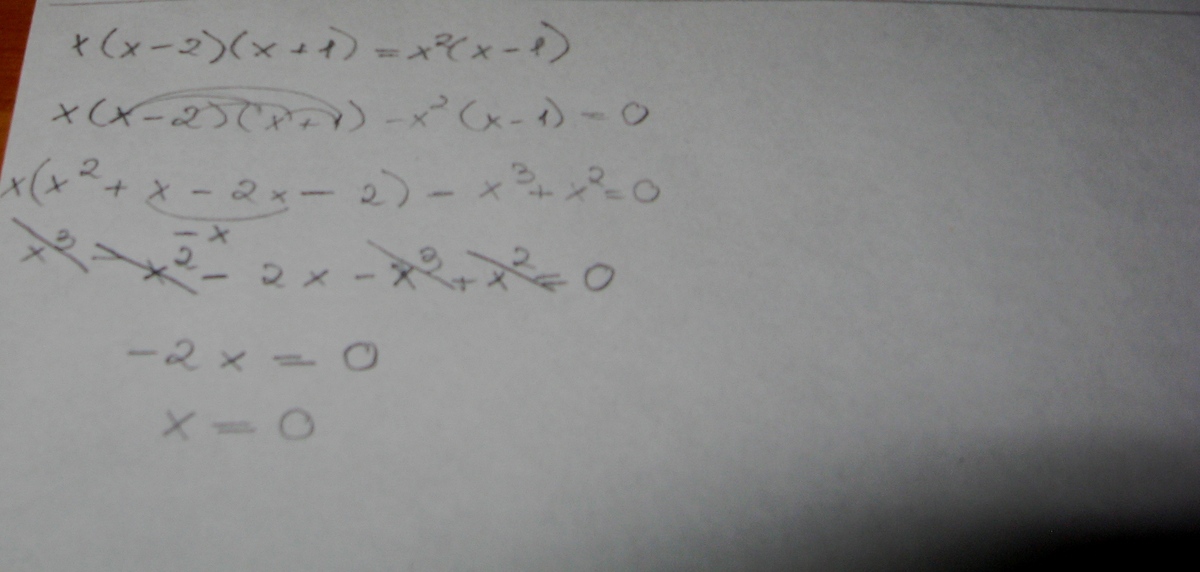 x(x-2)(x+1)=x²(x-1)
x(x-2)(x+1)-x²(x-1)=0
x(x²+x-2x-2)-x³+x²=0
-x
x³-x²-2x-x³+x²=0
-2x=0
x=0